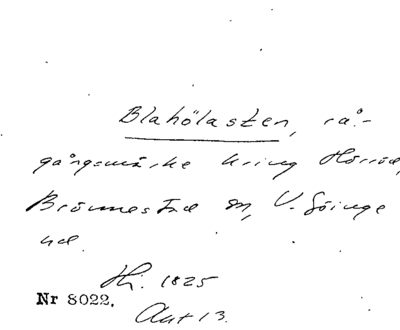 Blahölasten, rå-
gångsmärke kring Hörröd,
Brönnestad sn, V. Göinge
hd.
Hi. 1825
Nr 8022. Akt 13.